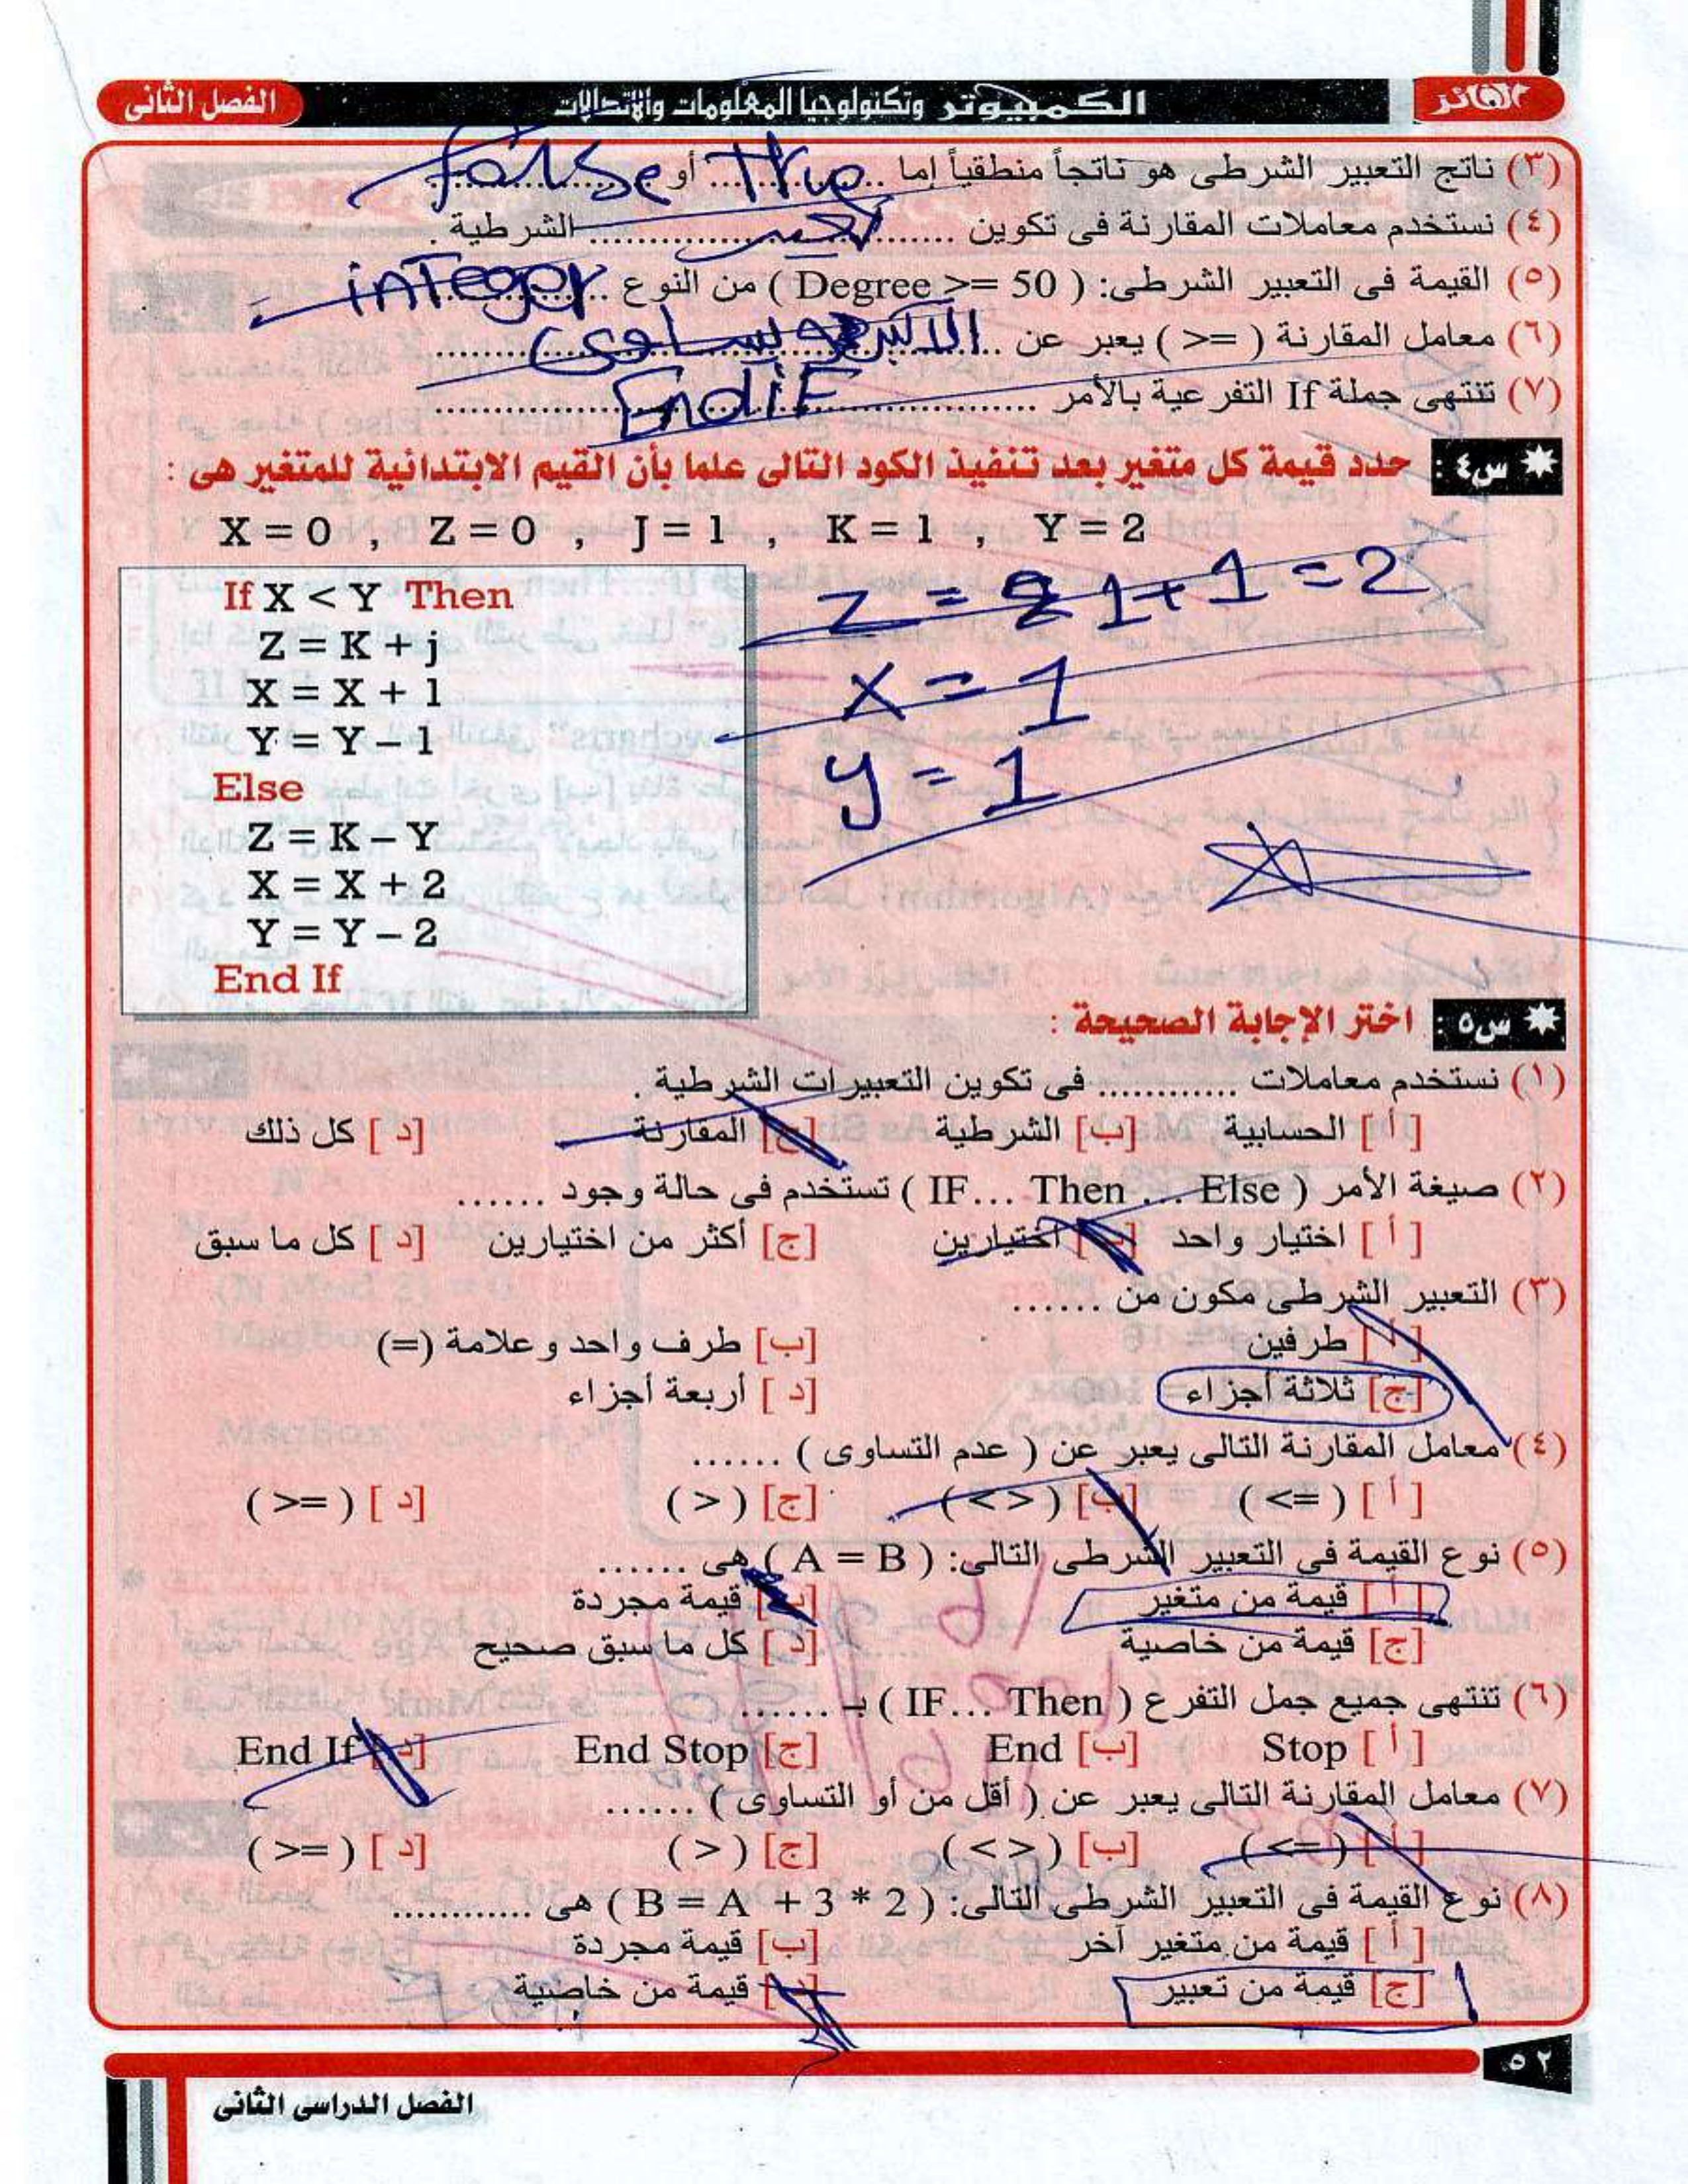 الفائز
الكمبيوتر وتكنولوجيا المعلومات والاتصالات
الفصل الثانى
(٣) ناتج التعبير الشرطى هو ناتجاً منطقياً إما ..True.. أو ..false..
(٤) نستخدم معاملات المقارنة فى تكوين .................... الشرطية .
(٥) القيمة فى التعبير الشرطى: ( Degree >= 50 ) من النوع ..........
(٦) معامل المقارنة ( >= ) يعبر عن ....................
(٧) تنتهى جملة If التفرعية بالأمر ..........EndiF..........
س٤ : حدد قيمة كل متغير بعد تنفيذ الكود التالى علما بأن القيم الابتدائية للمتغير هى :
X = 0 , Z = 0 , J = 1 , K = 1 , Y = 2
If X < Y Then
Z = K + j
X = X + 1
Y = Y – 1
Else
Z = K – Y
X = X + 2
Y = Y – 2
End If
Z = 1+1=2
x = 1
y = 1
س٥ : اختر الإجابة الصحيحة :
(١) نستخدم معاملات ............ فى تكوين التعبيرات الشرطية .
[أ] الحسابية [ب] الشرطية [ج] المقارنة [د] كل ذلك
(٢) صيغة الأمر ( IF… Then … Else ) تستخدم فى حالة وجود ......
[أ] اختيار واحد [ب] اختيارين [ج] أكثر من اختيارين [د] كل ما سبق
(٣) التعبير الشرطى مكون من ......
[أ] طرفين [ب] طرف واحد وعلامة (=)
[ج] ثلاثة أجزاء [د] أربعة أجزاء
(٤) معامل المقارنة التالى يعبر عن ( عدم التساوى ) ......
[أ] ( <= ) [ب] ( < > ) [ج] ( > ) [د] ( >= )
(٥) نوع القيمة فى التعبير الشرطى التالى: ( A = B ) هى ......
[أ] قيمة من متغير [ب] قيمة مجردة
[ج] قيمة من خاصية [د] كل ما سبق صحيح
(٦) تنتهى جميع جمل التفرع ( IF… Then ) بـ ......
[أ] Stop [ب] End [ج] End Stop [د] End If
(٧) معامل المقارنة التالى يعبر عن ( أقل من أو التساوى ) ......
[أ] ( <= ) [ب] ( < > ) [ج] ( > ) [د] ( >= )
(٨) نوع القيمة فى التعبير الشرطى التالى: ( B = A + 3 * 2 ) هى ............
[أ] قيمة من متغير آخر [ب] قيمة مجردة
[ج] قيمة من تعبير [د] قيمة من خاصية
٥٢
الفصل الدراسى الثانى